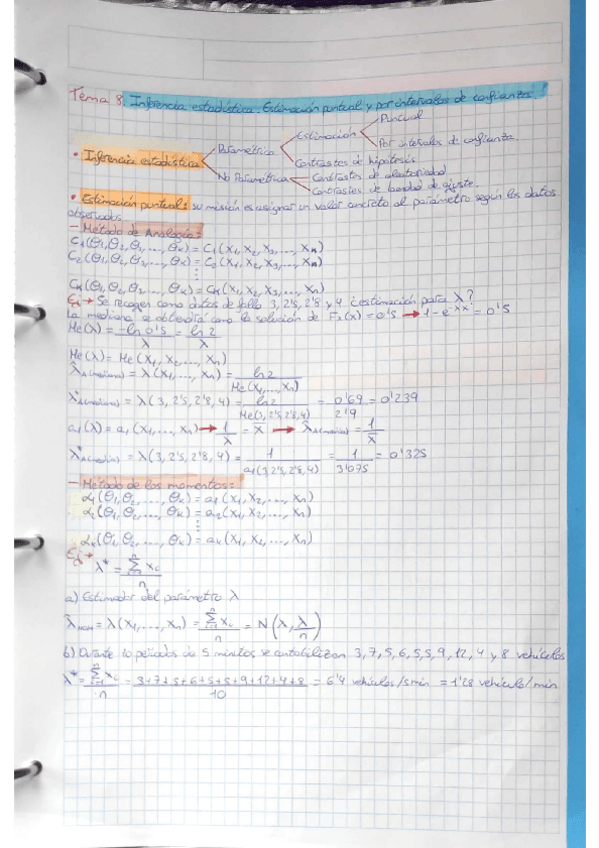 Tema 8: Inferencia estadística. Estimación puntual y por intervalos de confianza.
Puntual
Estimación
Paramétrica
Por intervalos de confianza
• Inferencia estadística
Contrastes de hipótesis
No Paramétrica
Contrastes de aleatoriedad
Contrastes de bondad de ajuste
• Estimación puntual: su misión es asignar un valor concreto al parámetro según los datos
observados.
- Método de Analogía:
C₁(θ₁, θ₂, θ₃, ..., θₖ) = C₁(x₁, x₂, x₃, ..., xₙ)
C₂(θ₁, θ₂, θ₃, ..., θₖ) = C₂(x₁, x₂, x₃, ..., xₙ)
⋮
Cₖ(θ₁, θ₂, θ₃, ..., θₖ) = Cₖ(x₁, x₂, x₃, ..., xₙ)
Ej → Se recogen como datos de fallo 3, 2'5, 2'8 y 4 ¿estimación para λ?
La mediana se obtendrá como la solución de Fₓ(x) = 0'5 → 1 - e^(-λx) = 0'5
Me(λ) = -ln 0'5 / λ = ln 2 / λ
Me(λ) = Me(x₁, x₂, ..., xₙ)
λ̂A(mediana) = λ(x₁, ..., xₙ) = ln 2 / Me(x₁, ..., xₙ)
λ*A(mediana) = λ(3, 2'5, 2'8, 4) = ln 2 / Me(3, 2'5, 2'8, 4) = 0'69 / 2'9 = 0'239
a₁(λ) = a₁(x₁, ..., xₙ) → 1/λ = x̄ → λ̂A(media) = 1/x̄
λ*A(media) = λ(3, 2'5, 2'8, 4) = 1 / a₁(3, 2'5, 2'8, 4) = 1 / 3'075 = 0'325
- Método de los momentos:
α₁(θ₁, θ₂, ..., θₖ) = a₁(x₁, x₂, ..., xₙ)
α₂(θ₁, θ₂, ..., θₖ) = a₂(x₁, x₂, ..., xₙ)
⋮
αₖ(θ₁, θ₂, ..., θₖ) = aₖ(x₁, x₂, ..., xₙ)
Ej →
λ* = Σⁿᵢ₌₁ xᵢ / n
a) Estimador del parámetro λ
λ̂MOM = λ(x₁, ..., xₙ) = Σⁿᵢ₌₁ xᵢ / n = N(λ, λ/n)
b) Durante 10 periodos de 5 minutos se contabilizan 3, 7, 5, 6, 5, 5, 9, 12, 4 y 8 vehículos
λ* = Σⁿᵢ₌₁ xᵢ / n = 3+7+5+6+5+5+9+12+4+8 / 10 = 6'4 vehículos/5min = 1'28 vehículo/min